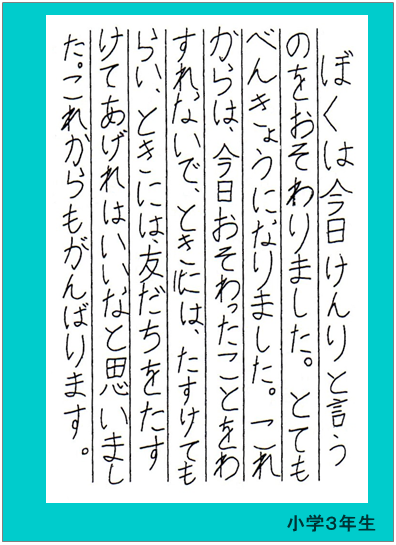 ぼくは今日けんりと言う
のをおそわりました。とても
べんきょうになりました。これ
からは、今日おそわったことをわ
すれないで、ときには、たすけても
らい、ときには、友だちをたす
けてあげれはいいなと思いまし
た。これからもがんばります。
小学3年生